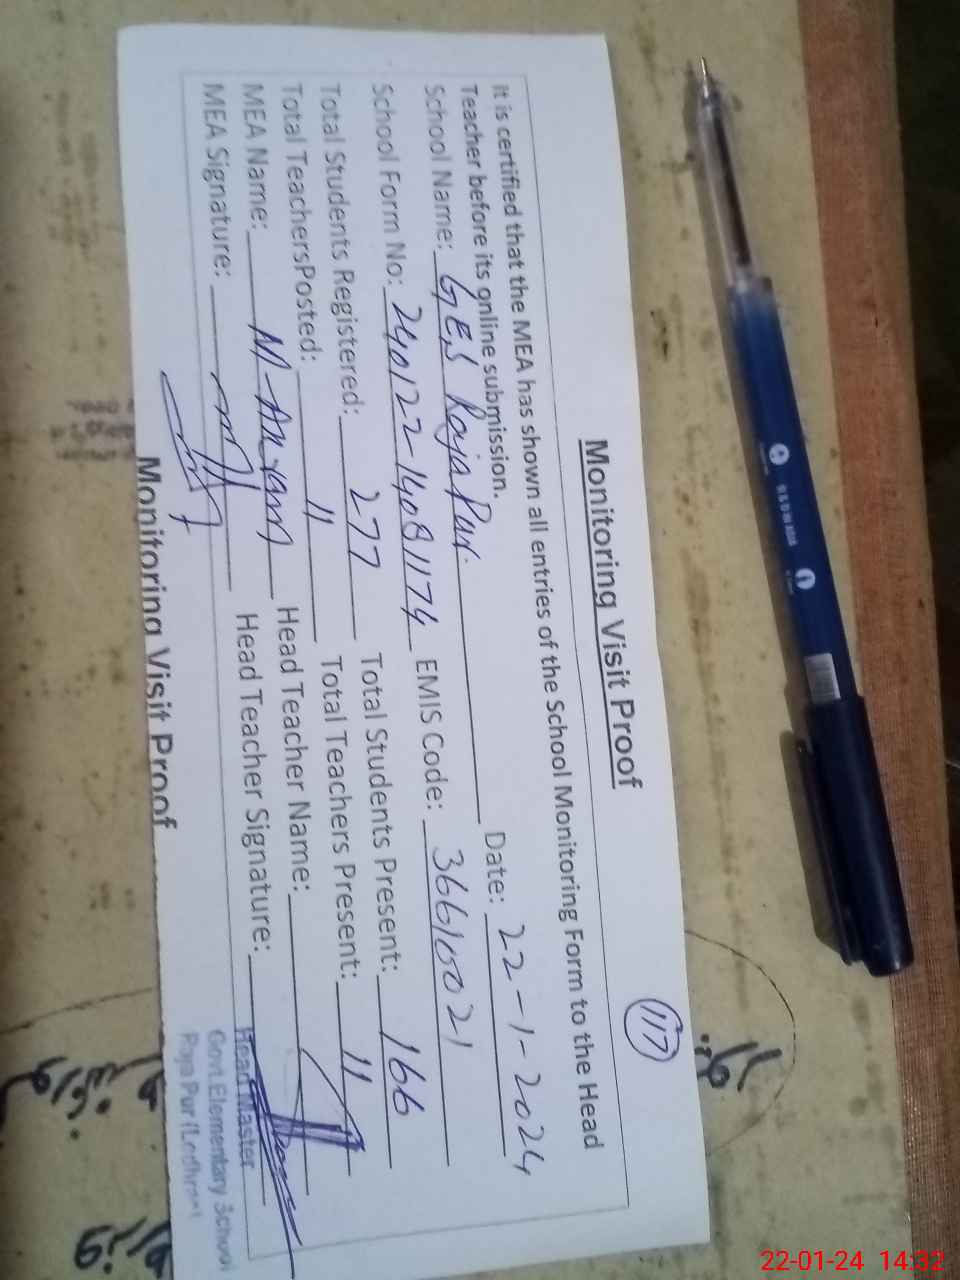 117
Monitoring Visit Proof
It is certified that the MEA has shown all entries of the School Monitoring Form to the Head
Teacher before its online submission.
School Name: GES Raja Pur. Date: 22-1-2024
School Form No: 240122-14081174 EMIS Code: 36610021
Total Students Registered: 277 Total Students Present: 166
Total TeachersPosted: 11 Total Teachers Present: 11
MEA Name: Head Teacher Name:
MEA Signature: Head Teacher Signature:
Head Master
Govt. Elementary School
Raja Pur (Lodhran)
Monitoring Visit Proof
22-01-24 14:32